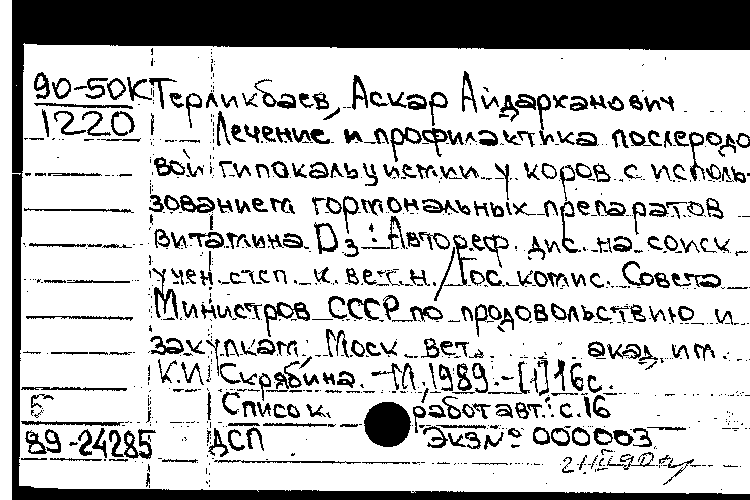 90-50К Терликбаев, Аскар Айдарханович
1220 Лечение и профилактика послеродо
вой гипокальцистии у коров с исполь-
зованием гормональных препаратов
витамина D3 : Автореф. дис. на соиск.
учен. степ. к. вет. н. / Гос. комис. Совета
Министров СССР по продовольствию и
закупкам. Моск. вет. акад. им.
К.И. Скрябина. - М., 1989. - [1] 16 с.
5 Список работ авт.: с. 16
89-24285 ДСП Экз № 000003